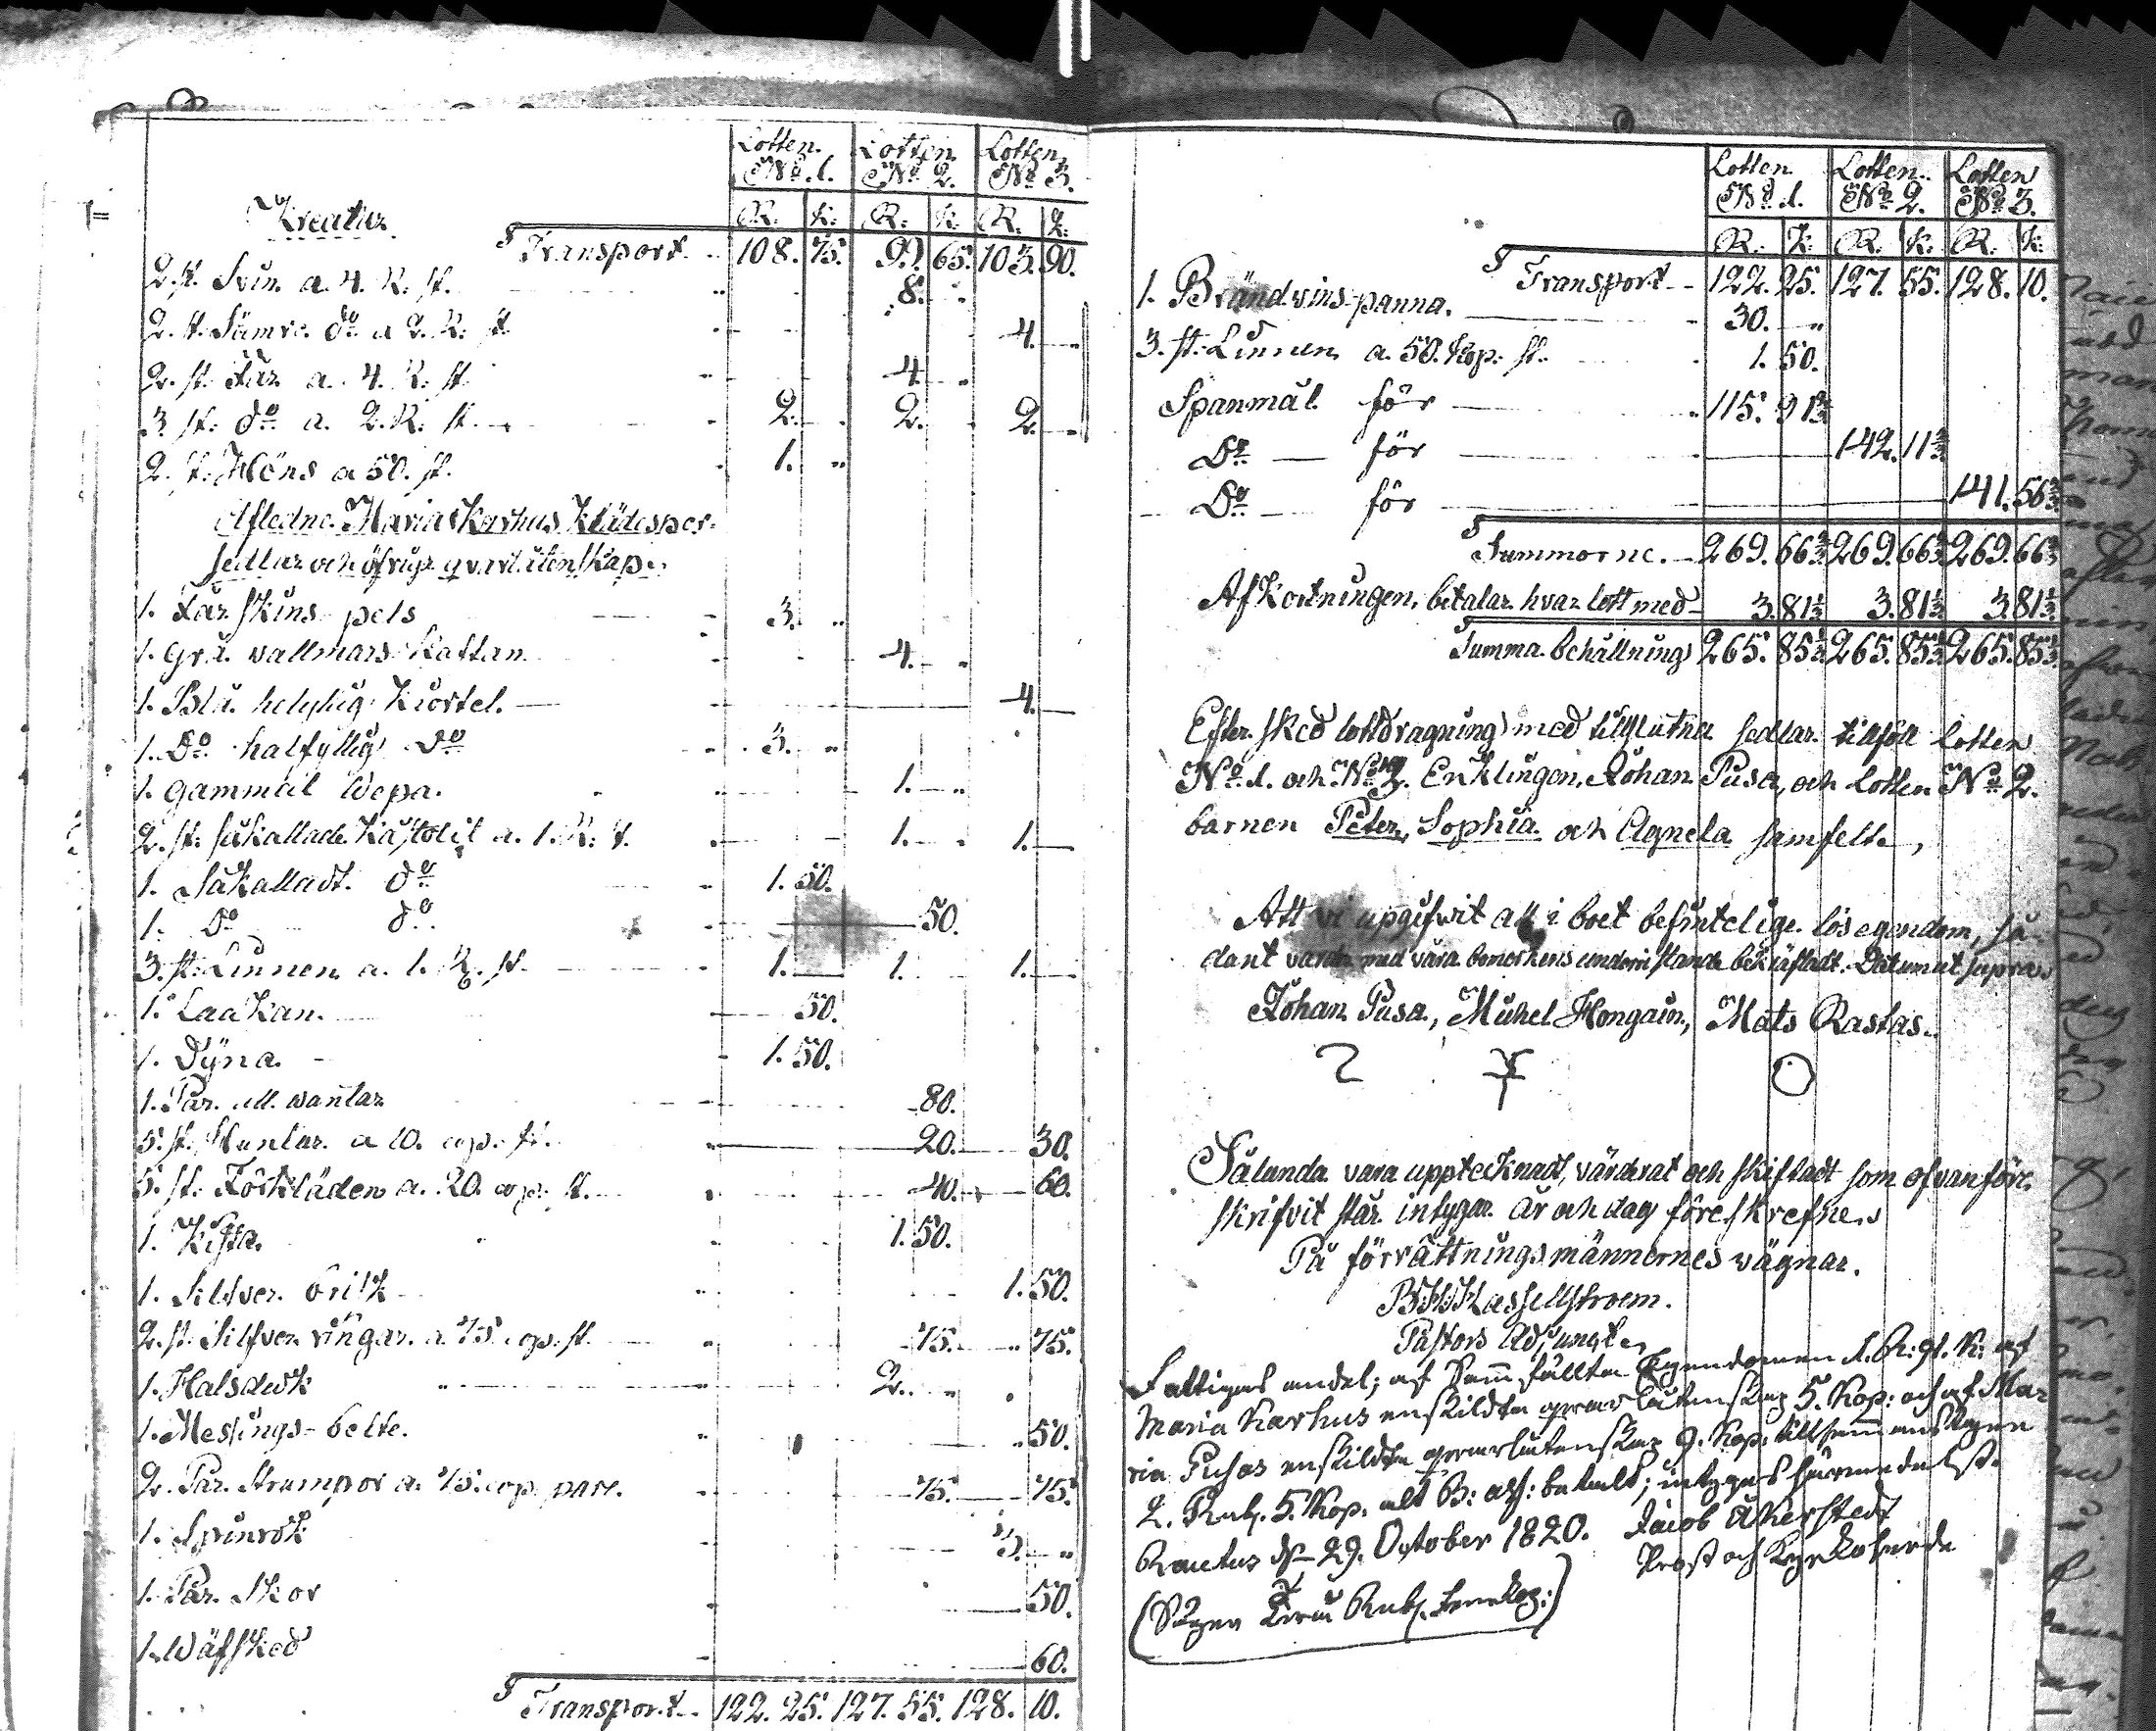 Lotten Lotten Lotten
No. 1. No. 2. No. 3.
Kreatur R: k: R: k: R. k:
Transport 108. 75. 99. 65. 103. 90.
2. st. Svin a. 4. R. st. 8.
2. st. Sämre do a 2. R: st. 4.
2. st. Får a. 4. R. st. 4.
3. st. do a. 2. R. st. 2. 2. 2.
2. st. Höns a 50. st. 1.
Afledne Maria Karhus Klädesper-
sedlar och öfrige qvarlåtenskap.
1. Fårskins pels 3.
1. Grå vallmars Kaftan 4.
1. Blå helylig Kiortel. 4.
1. Do halfyllig do 3.
1. Gammal Wepa. 1.
2. st. såkallade a. 1. R: st. 1. 1.
1. Såkalladt do 1. 50.
1. Do do 50.
3. st. Linnen a. 1. R. st. 1. 1. 1.
1. Laakan. 50.
1. Dyna. 1. 50.
1. Par. ull. wantar 80.
5. st. a 10. cop. st. 20. 30.
5. st. Förkläden a. 20. cop. st. 40. 60.
1. Kista. 1. 50.
1. Silfver 1. 50.
2. st. Silfver ringar a 75. cop. st. 75. 75.
1. Halsduk 2.
1. Messings-belte. 50.
2. Par. Strumpor a. 75. cop. paret. 75. 75.
1. Spinrok 3.
1. Par. Skor 50.
1. Wäfsked 60.
Transport 122. 25. 127. 55. 128. 10.
Lotten Lotten Lotten
No. 1. No. 2. No. 3.
R: k: R: k: R: k:
Transport 122. 25. 127. 55. 128. 10.
1. Brändvins panna. 30.
3. st: Linnen a. 50. kop: st. 1. 50.
Spanmål för 115. 91⅔
Do för 142. 11⅔
Do för 141. 56⅔
Summorne. 269. 66⅔ 269. 66⅔ 269. 66⅔
Afkortningen, betalar hvar lott med 3. 81⅓ 3. 81⅓ 3. 81⅓
Summa behållning 265. 85⅓ 265. 85⅓ 265. 85⅓
Efter sked lottdragning med tillslutna sedlar tillföll lotten
No. 1. och No 3. Enklingen Johan Pusa, och lotten No 2.
barnen Peter, Sophia och Agneta samfelt,
Att vi upgifvit all i boet befintelige lösegendom, så-
dant varde med våra bomerkens understående bekräftadt. Datum ut supra.
Johan Pusa, Michel Hongain, Mats Rastas.
Sålunda vara upptecknadt, värderat och skiftadt som ofvanföre
skrifvit står. intygar. År och dag föreskrefne.
På förrättningsmännernes vägnar.
Hassellstroem.
Pastors Adjunct.
Fattiges andel; af Samfällta Egendomen 1. R: 91. K: af
Maria Karhus enskildta qvarlåtenskap 5. Kop: och af Ma-
ria Pusas enskildta qvarlåtenskap 9. Kop: tillsammans
2. Rub. 5. Kop. betalt; intygas härmedelst.
Rautus d. 29. October 1820. Jacob Åkerstedt
Prost och Kyrkoherde
(Säger Två Rub. Fem kop:)